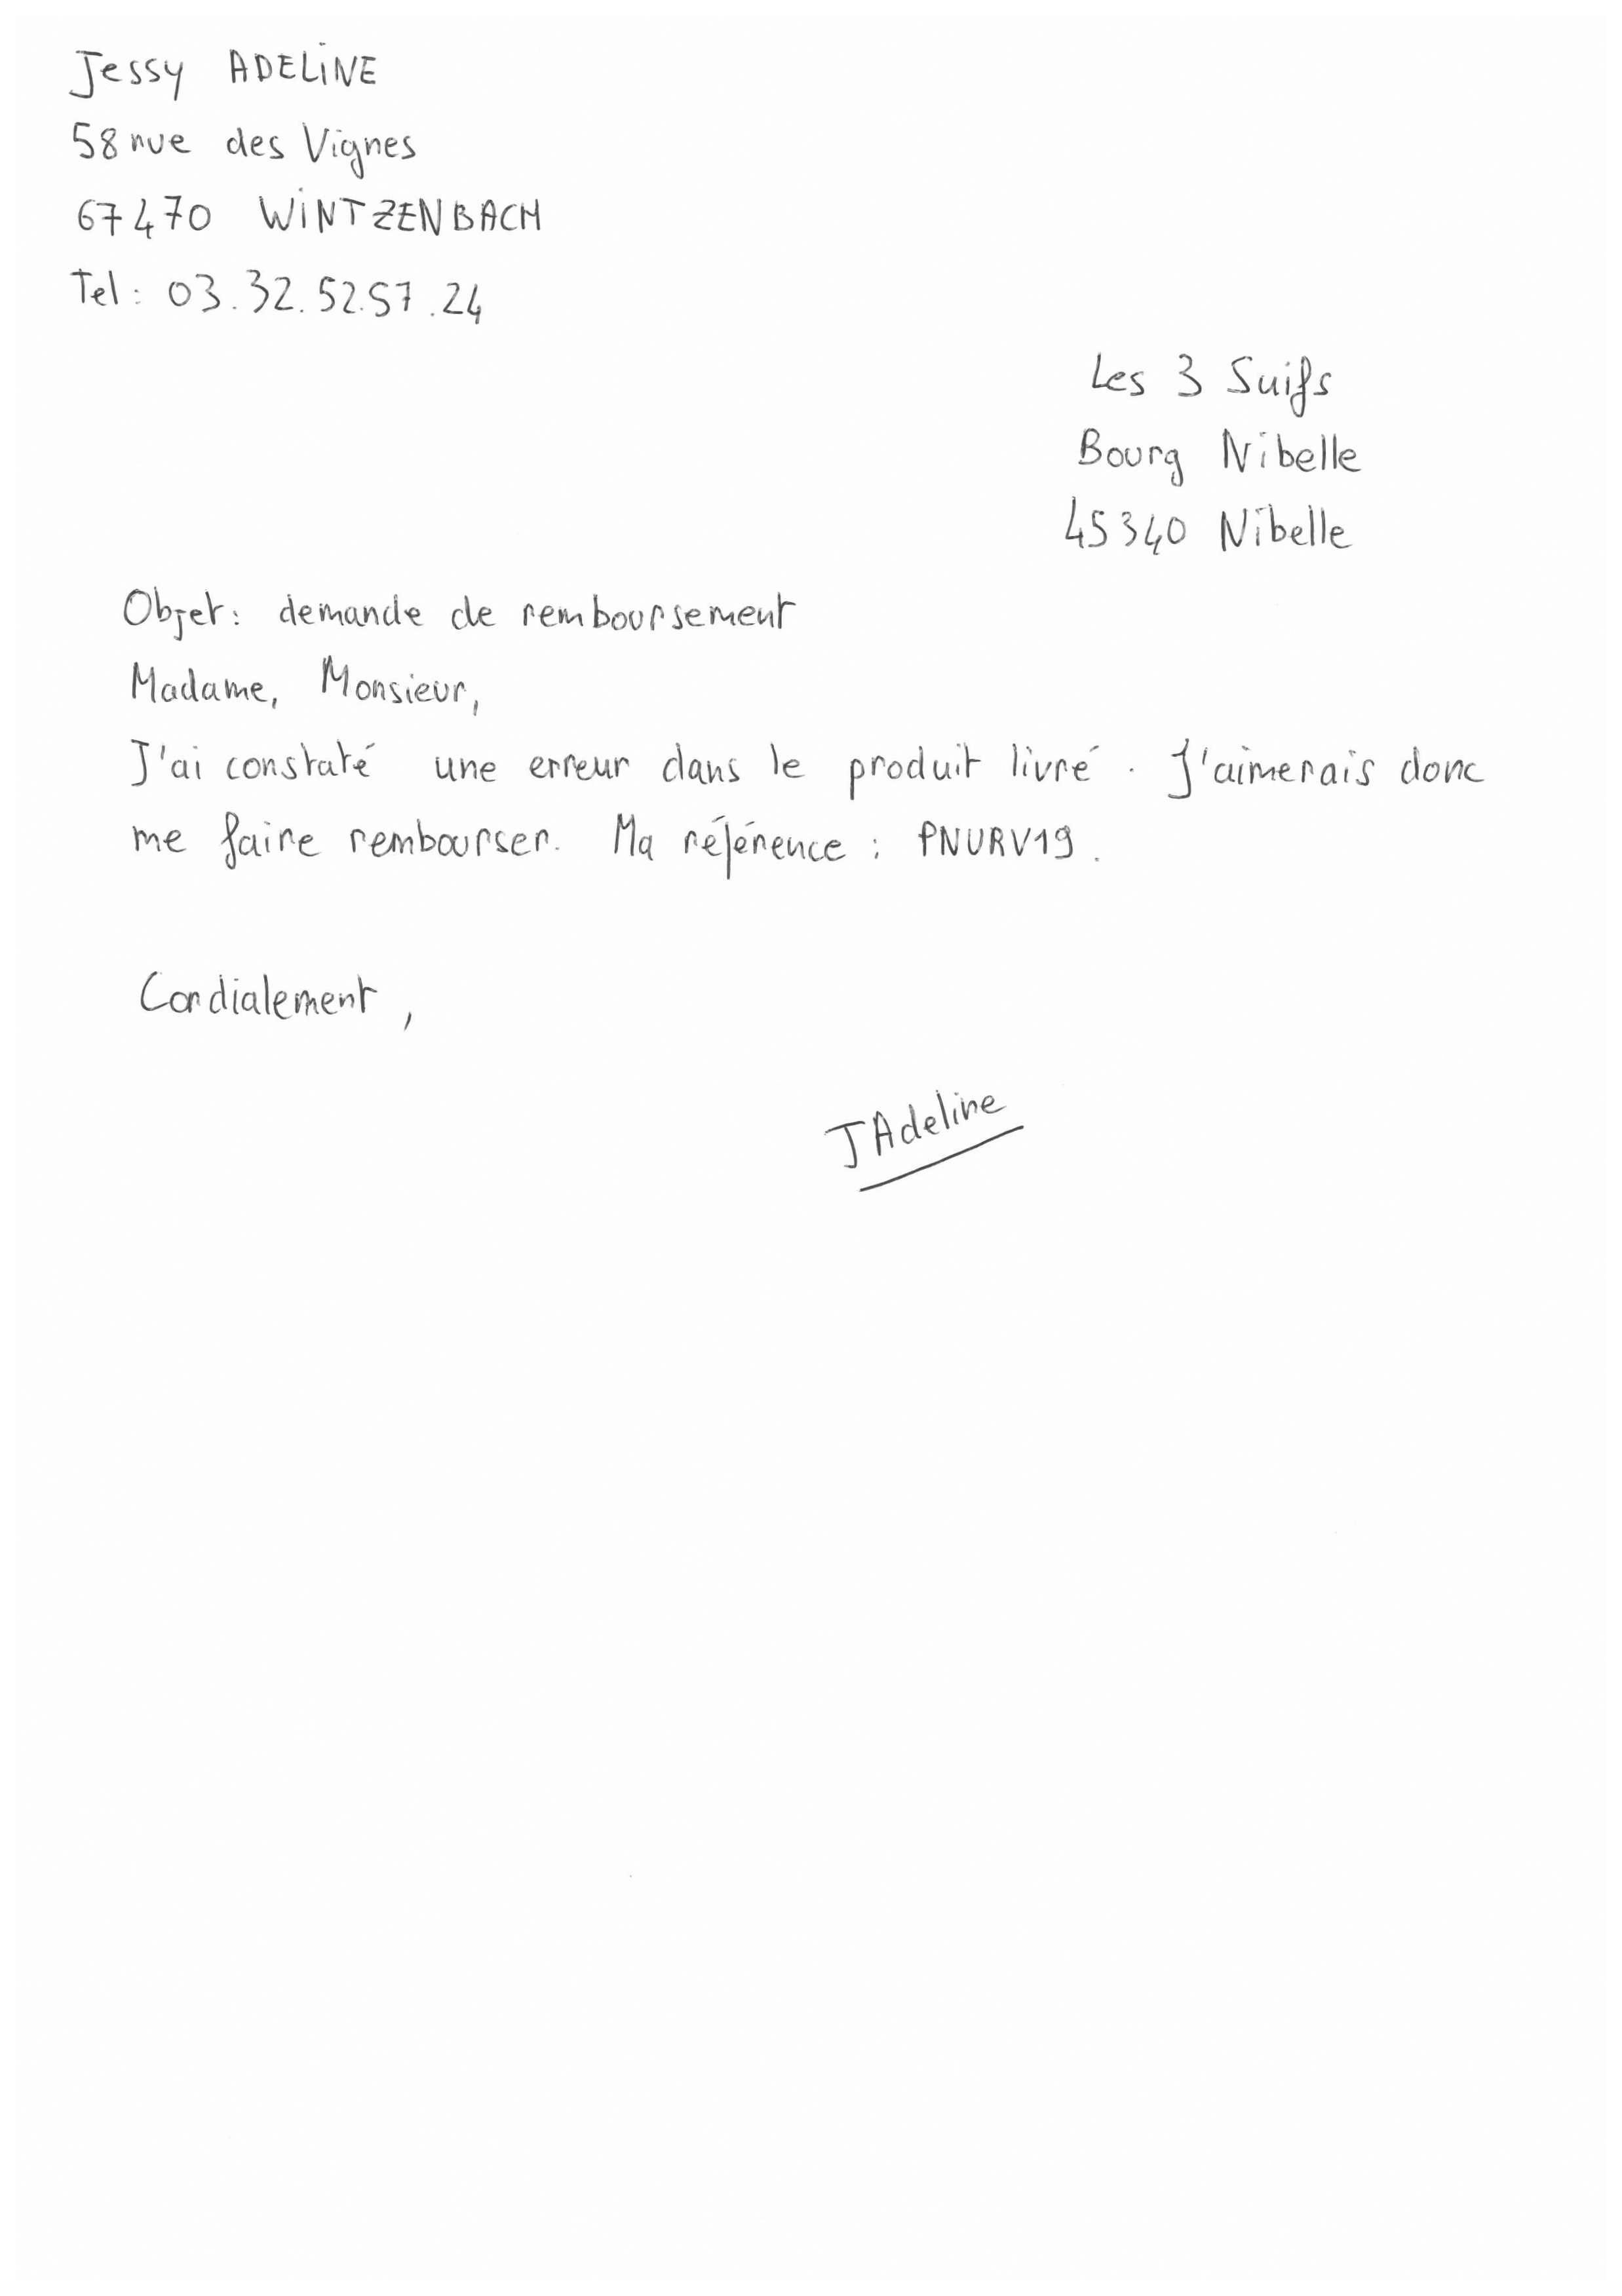 Jessy ADELINE
58 rue des Vignes
67470 WINTZENBACH
Tel : 03.32.52.57.24
Les 3 Suifs
Bourg Nibelle
45340 Nibelle
Objet : demande de remboursement
Madame, Monsieur,
J'ai constaté une erreur dans le produit livré. J'aimerais donc
me faire rembourser. Ma référence : PNURV19.
Cordialement,
JAdeline